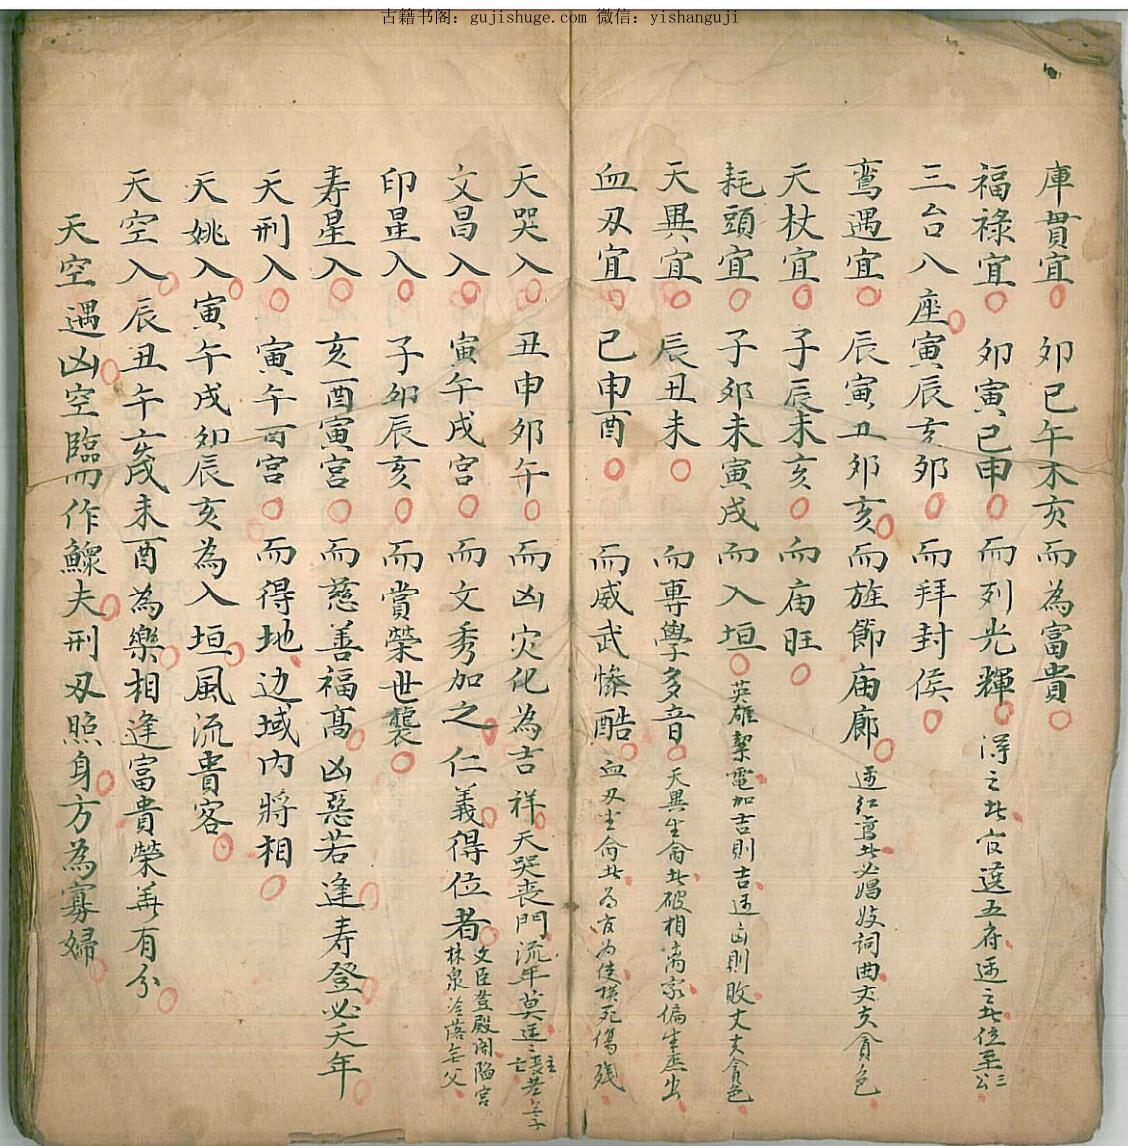 古籍书阁：gujishuge.com 微信：yishanguji
庫貫宜 卯巳午木亥而為富貴
福祿宜 卯寅巳申 而列光輝 得之者官遷五府 逢之者位至三公
三台八座寅辰亥卯 而拜封侯
鸞遇宜 辰寅丑卯亥而旌節庙廊 逢红鸾者必娼妓詞曲丈夫貪色
天杖宜 子辰未亥 而庙旺
耗頭宜 子卯未寅戌而入垣 英雄 電加吉則吉逢凶則敗丈夫貪色
天異宜 辰丑未 而專學多音 天異生命者破相离家偏生庶出
血刃宜 巳申酉 而威武慘酷 血刃坐命者 横死傷残
天哭入 丑申卯午 而凶灾化為吉祥 天哭丧門流年莫逢之主丧老亡子
文昌入 寅午戌宮 而文秀加之仁義得位者 文臣登殿閑陷宮林泉冷落
印星入 子卯辰亥 而賞榮世襲
寿星入 亥酉寅宮 而慈善福高凶惡若逢寿登必夭年
天刑入 寅午酉宮 而得地边域内將相
天姚入寅午戌卯辰亥為入垣風流貴客
天空入辰丑午亥戌未酉為樂相逢富貴榮華有分
天空遇凶空臨而作鰥夫刑刃照身方為寡婦